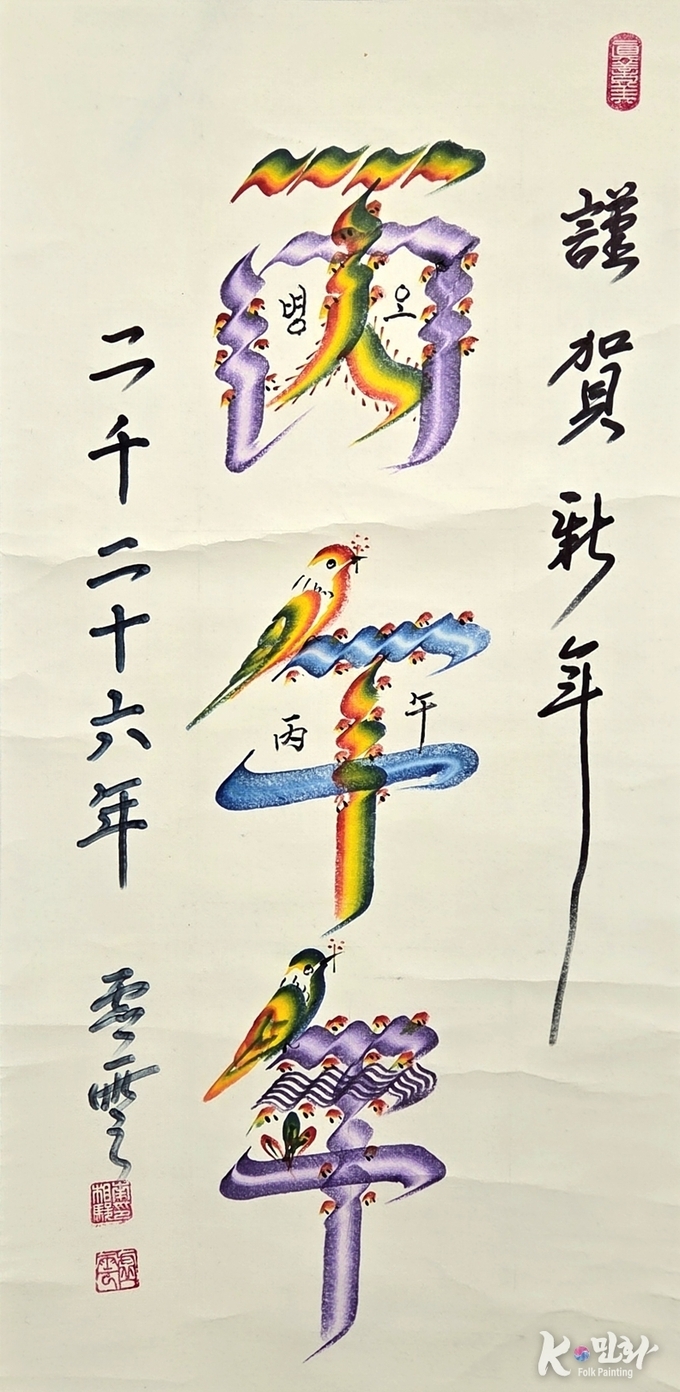 眞善美
謹賀新年
丙午年
병오
丙午
二千二十六年
K 민화
Folk Painting